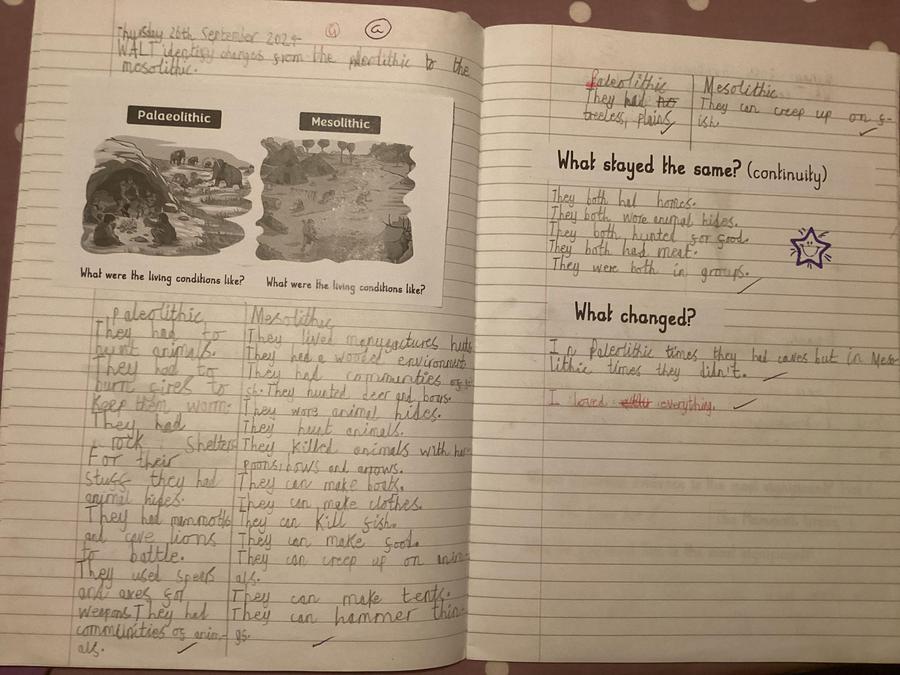 Thursday 26th September 2024
WALT identify changes from the paleolithic to the
mesolithic.
Palaeolithic
Mesolithic
What were the living conditions like?
What were the living conditions like?
paleolithic
They had to
hunt animals.
They had to
burn fires to
Keep them warm.
They had
rock Shelters
For their
stuff they had
animal hides.
They had mammoths
and cave lions
to battle.
They used spears
and axes for
weapons They had
communities of anim-
als.
Mesolithic
They lived manufactures huts
They had a wooded enviroment
They had communities of
They hunted deer and boars.
They wore animal hides.
They hunt animals.
They killed animals with har-
poons, bows and arrows.
They can make boats.
They can make clothes.
They can kill fish.
They can make food.
They can creep up on anim-
als.
They can make tents.
They can hammer thin-
gs.
Paleolithic
They had
treeless, plains
Mesolithic
They can creep up on f-
ish.
What stayed the same? (continuity)
They both had homes.
They both wore animal hides.
They both hunted for food.
They both had meat.
They were both in groups.
What changed?
In Paleolithic times they had caves but in Meso-
lithic times they didn't.
I loved everything.